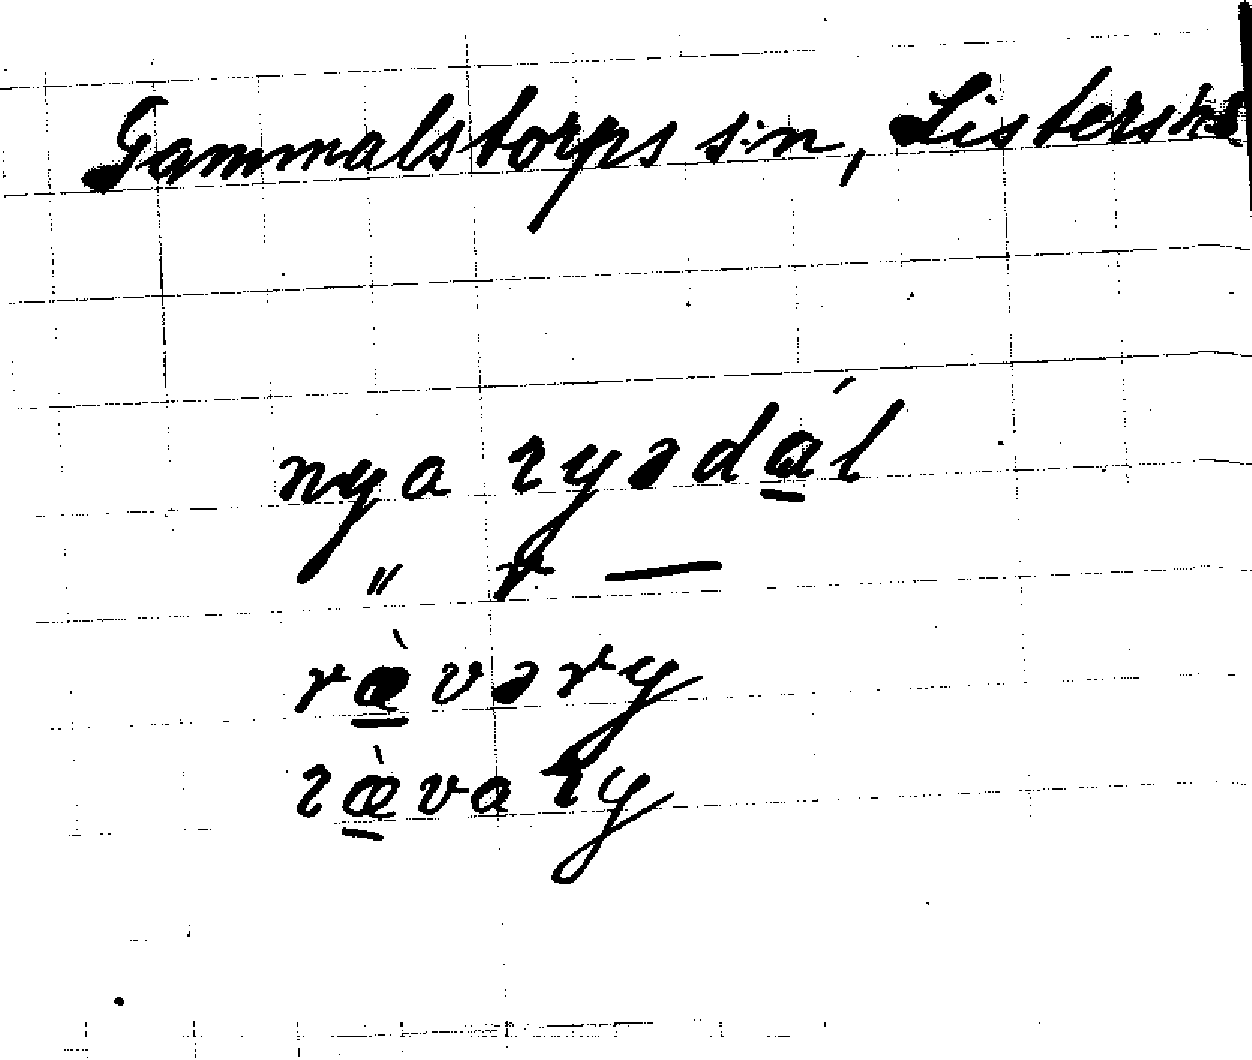 Gammalstorps sn, Listers hd
nya ryədál
〃 r —
ræ̀vəry
ræ̀vary